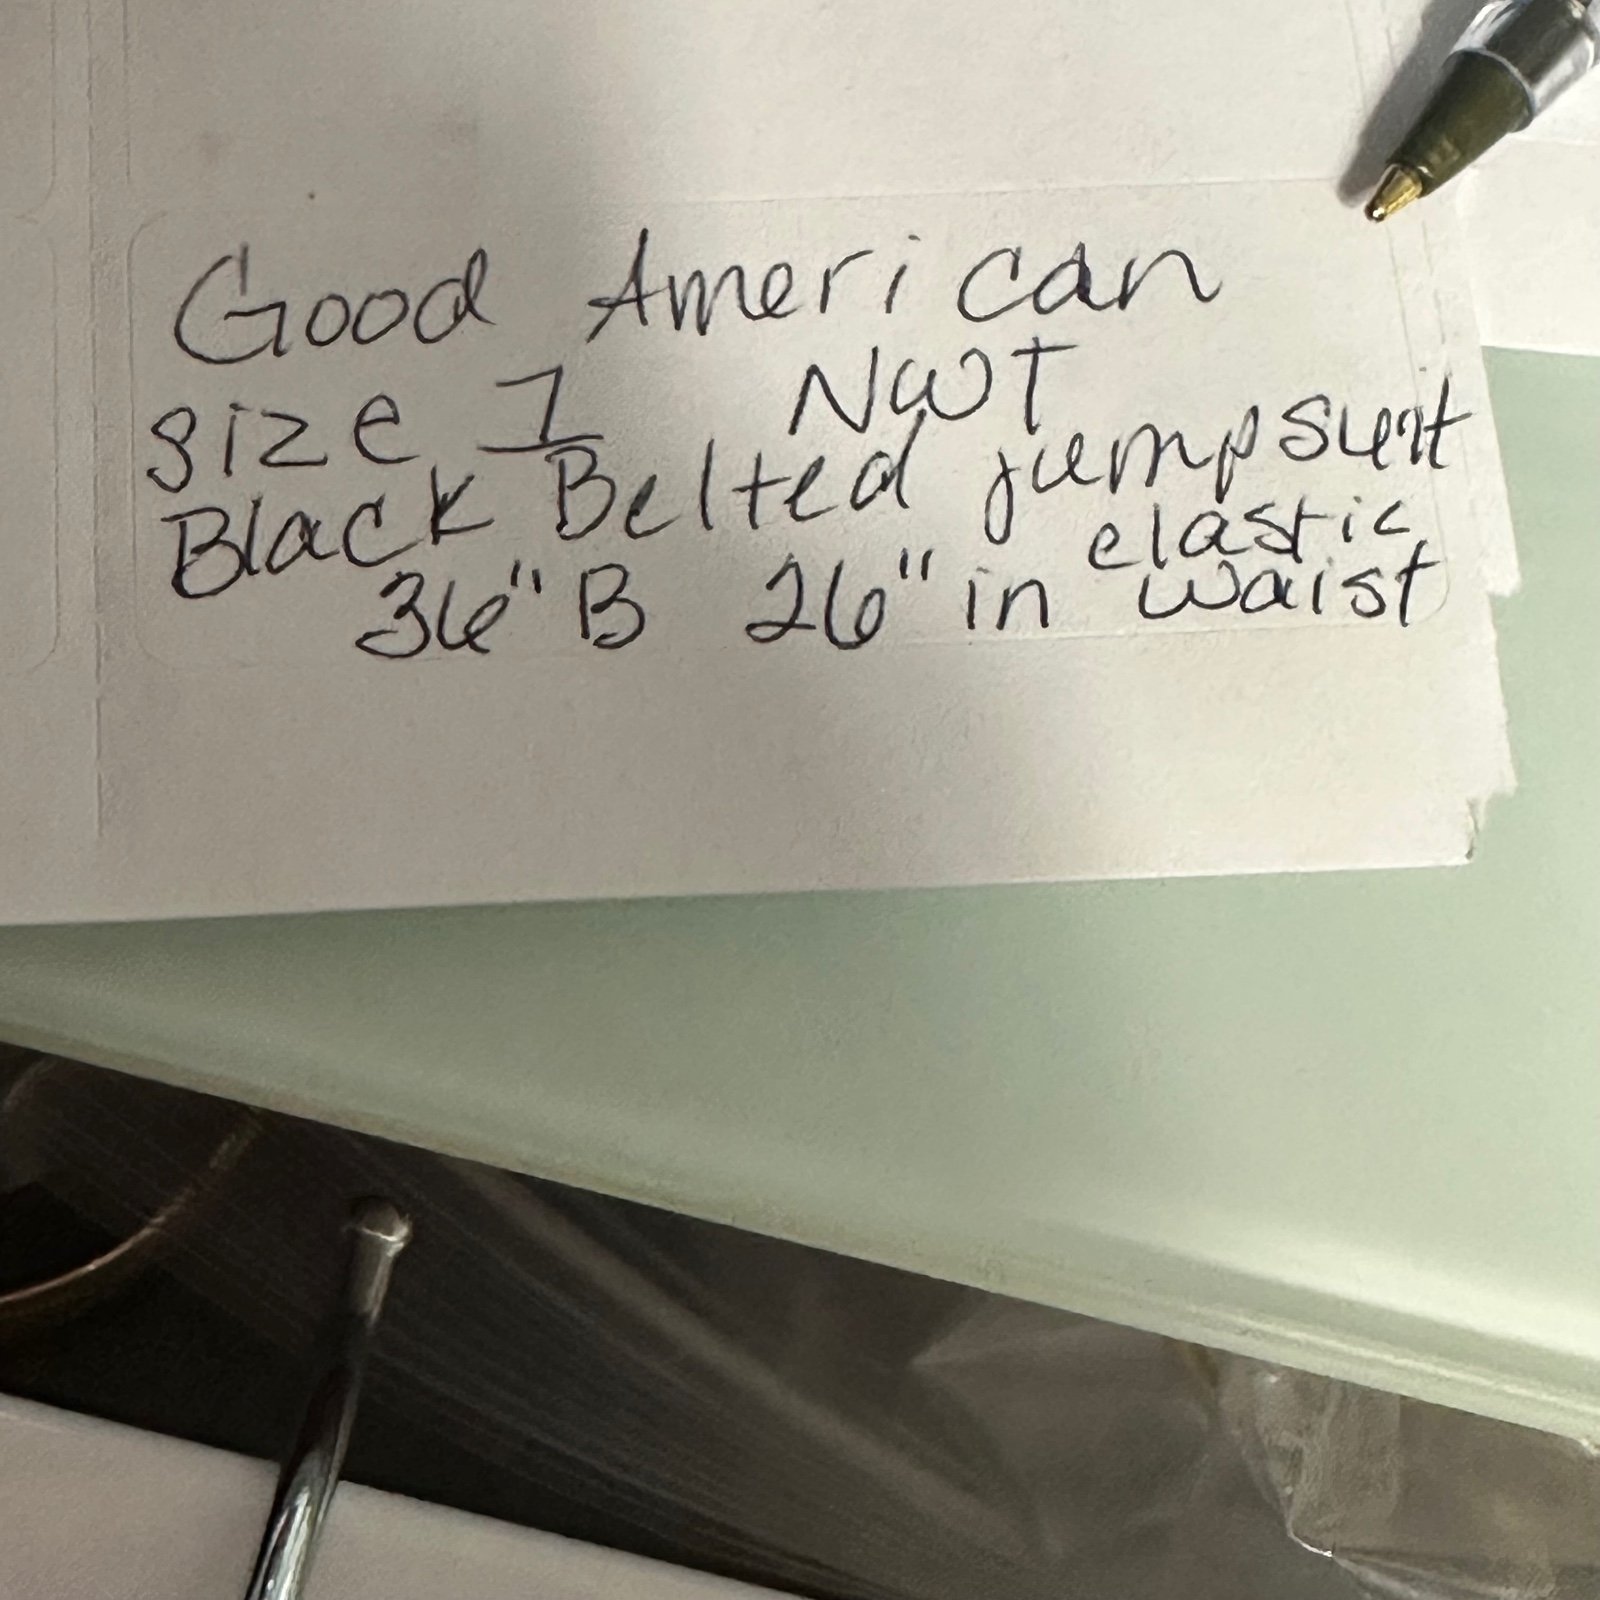 Good American
size 1 NWT
Black Belted jumpsuit
36" B 26" in elastic waist